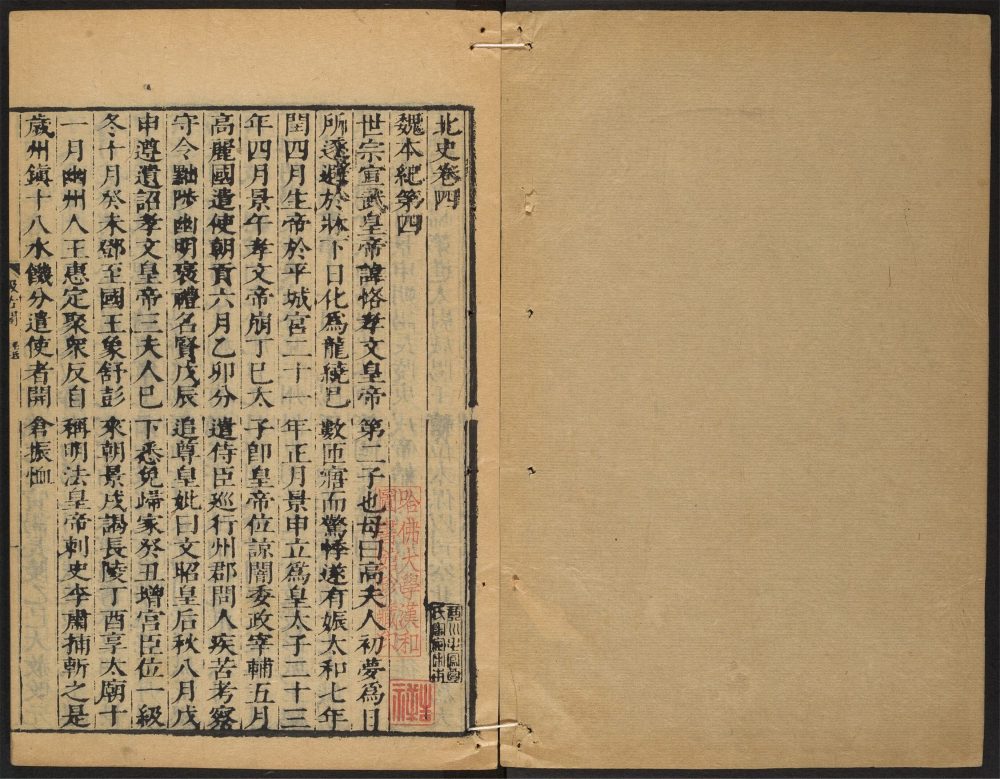 北史卷四
魏本紀第四
世宗宣武皇帝諱恪孝文皇帝第二子也母曰高夫人初夢爲日
所逐避於牀下日化爲龍繞已數匝寤而驚悸遂有娠太和七年
閏四月生帝於平城宮二十一年正月景申立爲皇太子二十三
年四月景午孝文帝崩丁巳太子卽皇帝位諒闇委政宰輔五月
高麗國遣使朝貢六月乙卯分遣侍臣巡行州郡問人疾苦考察
守令黜陟幽明襃禮名賢戊辰追尊皇妣曰文昭皇后秋八月戊
申遵遺詔孝文皇帝三夫人已下悉免歸家癸丑增宮臣位一級
冬十月癸未鄧至國王象舒彭來朝景戌謁長陵丁酉享太廟十
一月幽州人王惠定聚衆反自稱明法皇帝刺史李肅捕斬之是
歲州鎮十八水饑分遣使者開倉振恤
哈佛大學漢和圖書館珍藏印